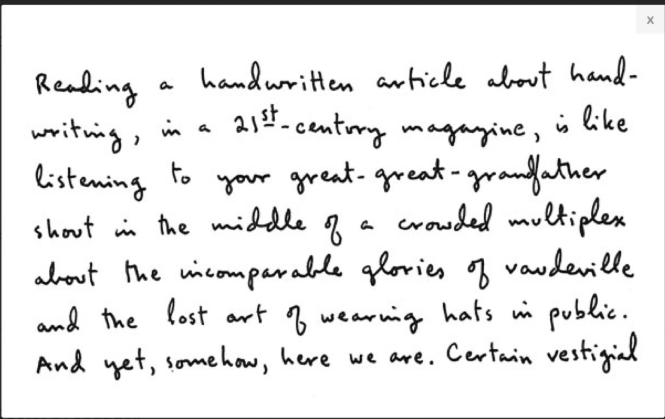 x
Reading a handwritten article about hand-
writing, in a 21st-century magazine, is like
listening to your great-great-grandfather
shout in the middle of a crowded multiplex
about the incomparable glories of vaudeville
and the lost art of wearing hats in public.
And yet, somehow, here we are. Certain vestigial